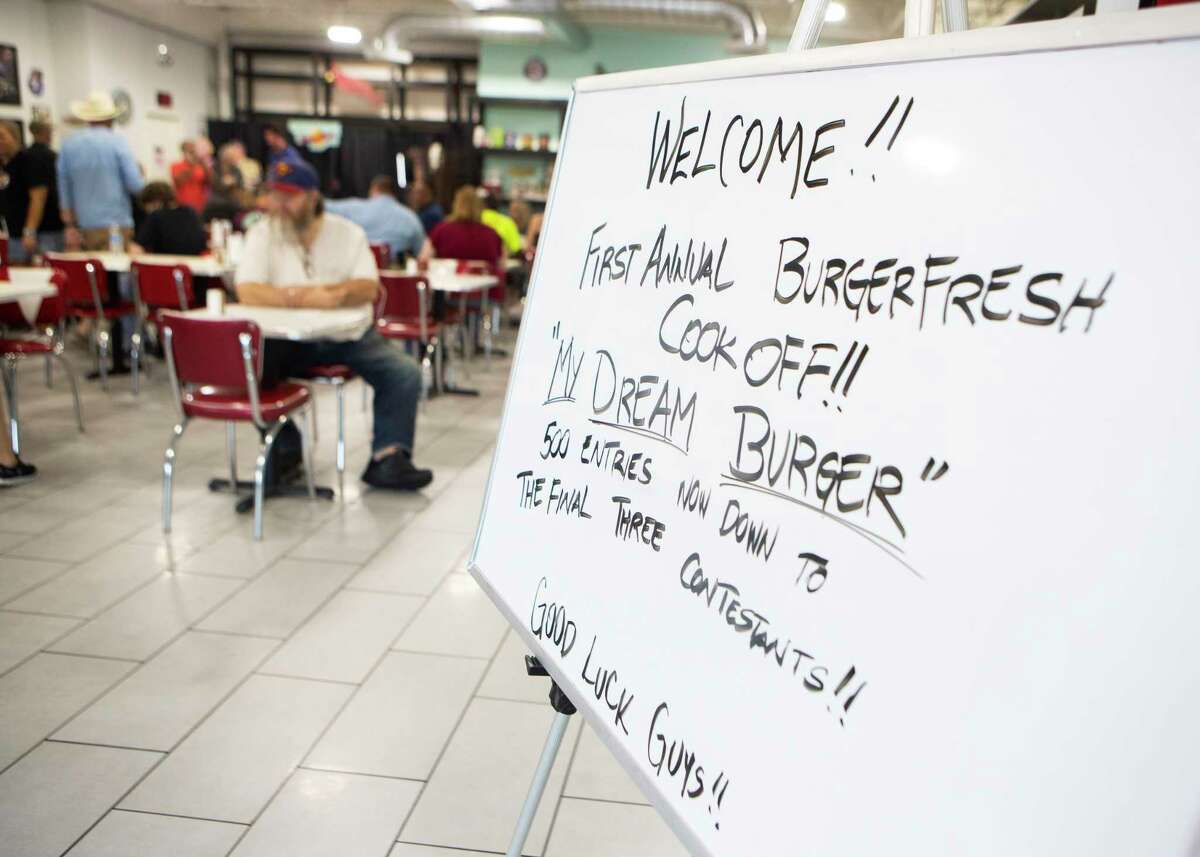 WELCOME!!
FIRST ANNUAL BURGERFRESH
COOK OFF!!
"MY DREAM BURGER"
500 ENTRIES NOW DOWN TO
THE FINAL THREE CONTESTANTS!!
GOOD LUCK GUYS!!